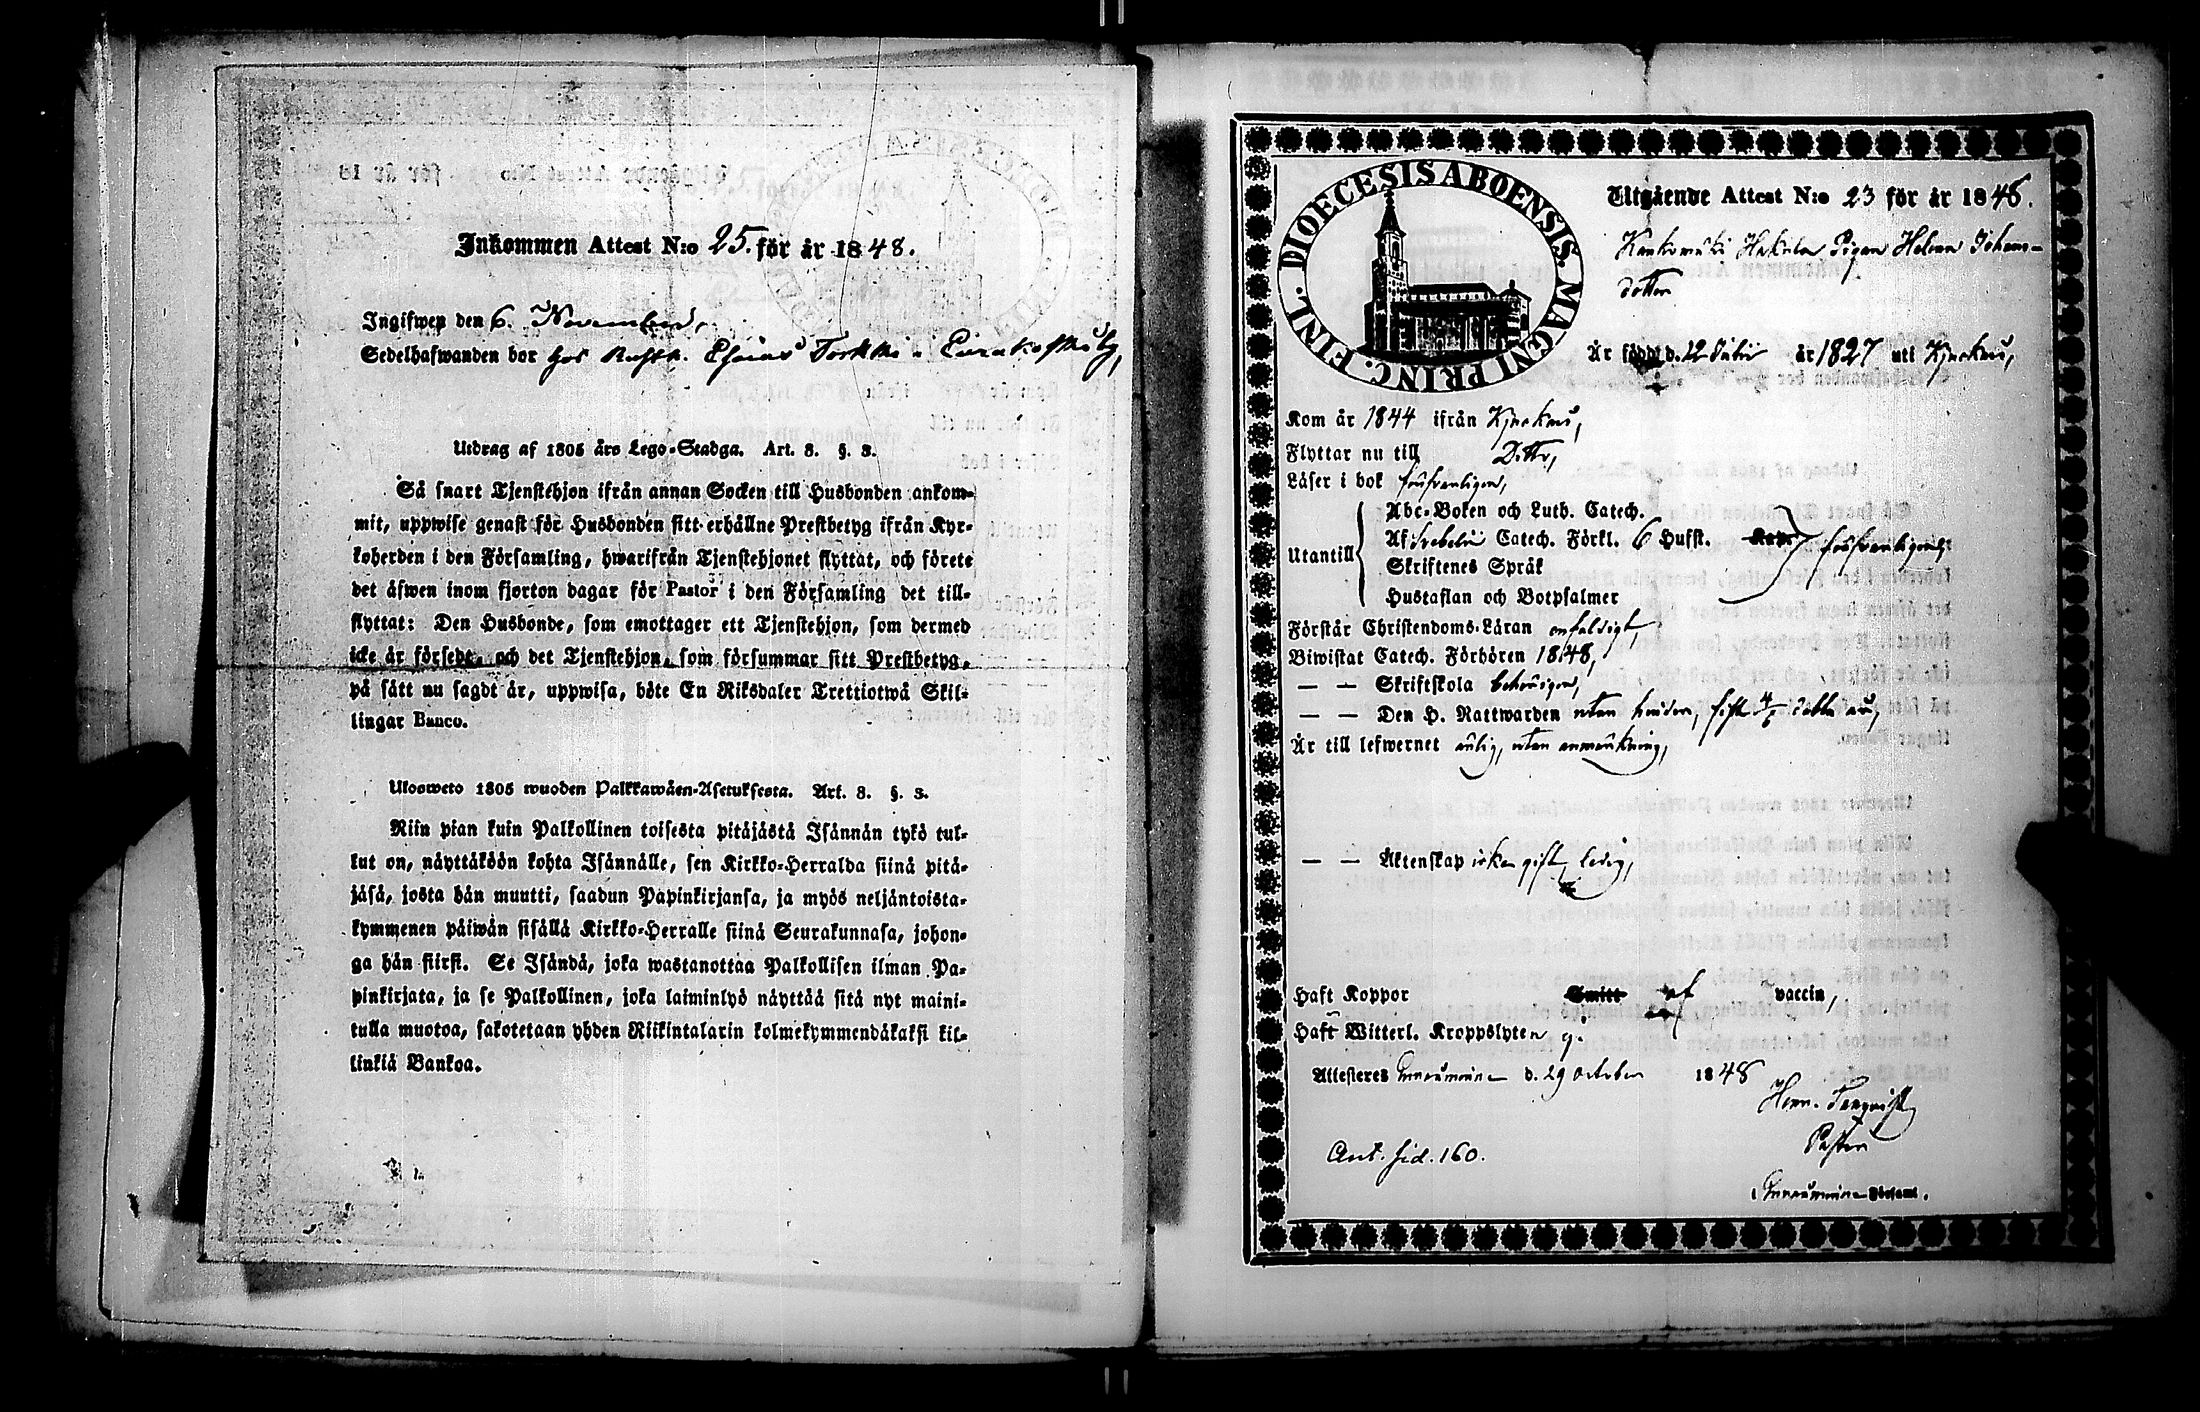 Inkommen Attest N:o 25. för år 1848.
Ingifwen den 6. November,
Sedelhafwanden bor hos Rusth. Esaias Torkki i Eurakoski by,
Utdrag af 1805 års Lego-Stadga. Art. 8. §. 3.
Så snart Tjenstehjon ifrån annan Socken till Husbonden ankom-
mit, uppwise genast för Husbonden sitt erhållne Prestbetyg ifrån Kyr-
koherden i den Församling, hwarifrån Tjenstehjonet flyttat, och förete
det äfwen inom fjorton dagar för Pastor i den Församling det till-
flyttat: Den Husbonde, som emottager ett Tjenstehjon, som dermed
icke är försedt, och det Tjenstehjon, som försummar sitt Prestbetyg,
på sätt nu sagdt är, uppwisa, böte En Riksdaler Trettiotwå Skil-
lingar Banco.
Ulosweto 1805 wuoden Palkkawäen-Asetuksesta. Art. 8. §. 3.
Niin pian kuin Palkollinen toisesta pitäjästä Isännän tykö tul-
lut on, näyttäköön kohta Isännälle, sen Kirkko-Herralda siinä pitä-
jäsä, josta hän muutti, saadun Papinkirjansa, ja myös neljäntoista-
kymmenen päiwän sisällä Kirkko-Herralle siinä Seurakunnasa, johon-
ga hän siirsi. Se Isändä, joka wastanottaa Palkollisen ilman Pa-
pinkirjata, ja se Palkollinen, joka laiminlyö näyttää sitä nyt maini-
tulla muotoa, sakotetaan yhden Riikintalarin kolmekymmendäkaksi kil-
linkiä Bankoa.
DIOECESIS ABOENSIS. MAGNI PRINC. FINL.
Utgående Attest N:o 23 för år 1848.
Hakula Pigan Helena Johans-
dotter
Är född d. 12 Julii år 1827 uti Kjukais,
Kom år 1844 ifrån Kjukais,
Flyttar nu till Ditto,
Läser i bok försvarligen,
Abc-Boken och Luth. Catech.
Utantill Af Svebelii Catech. Förkl. 6 Hufst. försvarligen
Skriftenes Språk
Hustaflan och Botpsalmer
Förstår Christendoms-Läran enfaldigt,
Biwistat Catech. Förhören 1848,
— — Skriftskola behörigen,
— — Den H. Nattwarden utan hinder, sist 4/6 detta år,
Är till lefwernet ärlig, utan anmärkning,
— — Äktenskap icke gift, ledig,
Haft Koppor Smitt af vaccin,
Haft Witterl. Kroppslyten ej.
Attesteras d. 29 October 1848
Pastor
Ant. sid. 160.
i Församl.